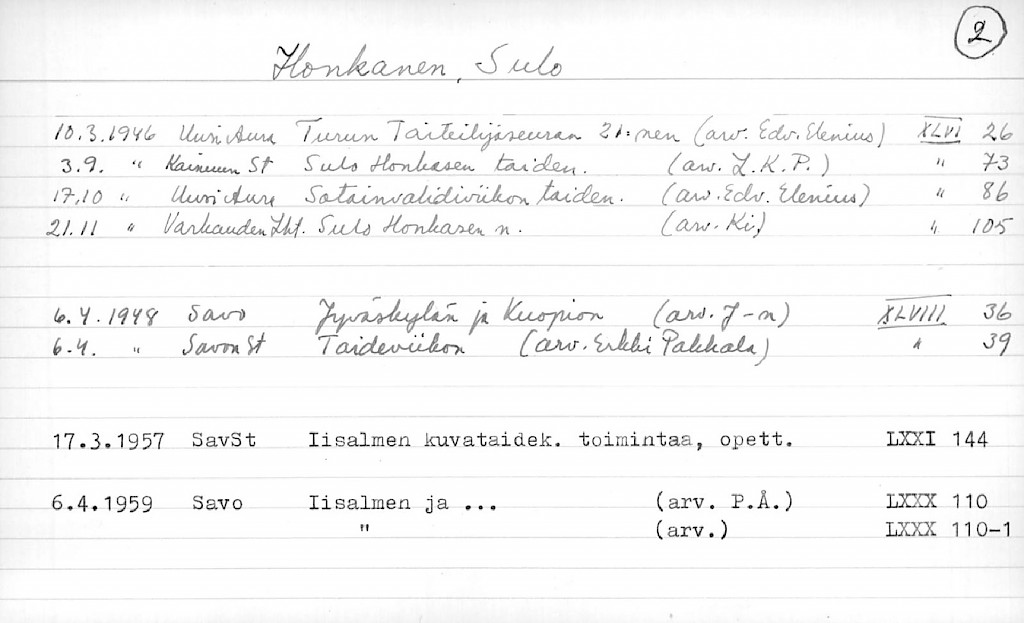 2
Honkanen, Sulo
10.3.1946 Uusi Aura Turun Taiteilijaseuran 21:nen (arv. Edv. Elenius) XLVI 26
3.9. " Kainuun St Sulo Honkasen taiden. (arv. L.K.P.) " 73
17.10 " Uusi Aura Sotainvalidiviikon taiden. (arv. Edv. Elenius) " 86
21.11 " Varkauden Lht. Sulo Honkasen n. (arv. Ki) " 105
6.4.1948 Savo Jyväskylän ja Kuopion (arv. J-n) XLVIII 36
6.4. " Savon St Taideviikon (arv. Erkki Pakkala) " 39
17.3.1957 SavSt Iisalmen kuvataidek. toimintaa, opett. LXXI 144
6.4.1959 Savo Iisalmen ja ... (arv. P.Å.) LXXX 110
" (arv.) LXXX 110-1